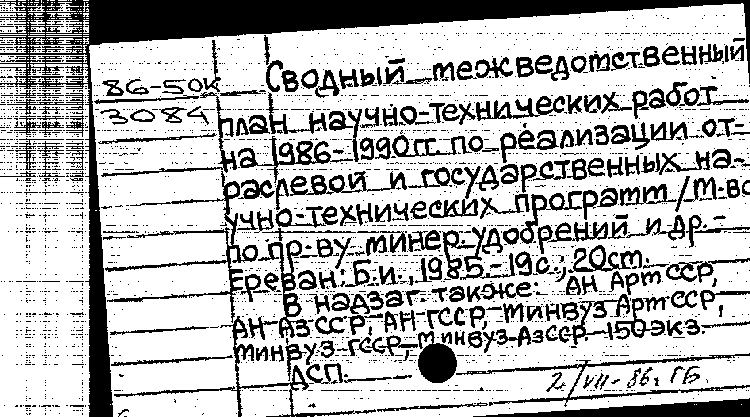 86-50к
3084
Сводный межведомственный
план научно-технических работ
на 1986-1990гг. по реализации от-
раслевой и государственных на-
учно-технических программ / М-во
по пр-ву минер. удобрений и др.-
Ереван: Б.и., 1985.-19с.; 20см.
В надзаг. также: АН АрмССР,
АН АзССР, АН ГССР, Минвуз АрмССР,
Минвуз ГССР, Минвуз АзССР. 150 экз.
ДСП.
2/VII-86г. ГБ